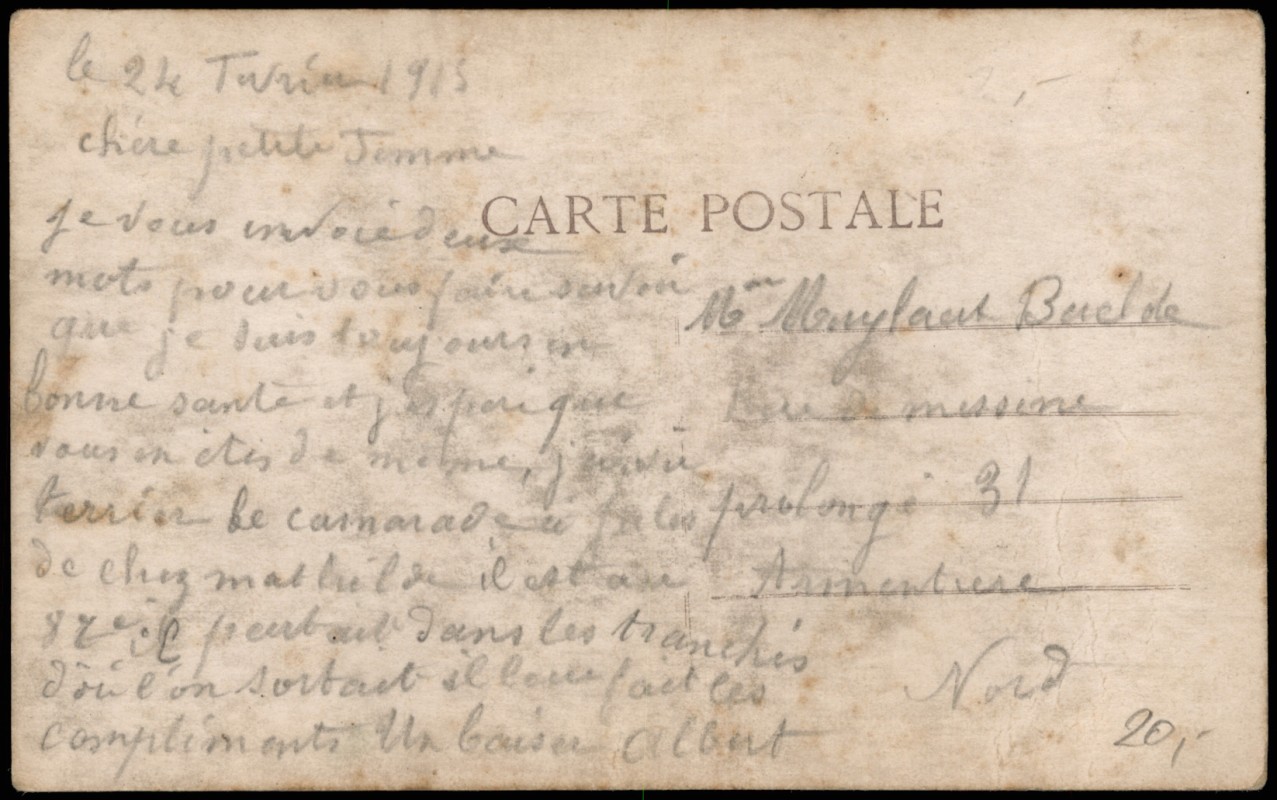 le 24 Fevrier 1915
chère petite Femme
CARTE POSTALE
je vous envoie deux
mots pour vous faire savoir
que je suis toujours en
bonne santé et j'espere que
vous en êtes de meme,
le camarade a
de chez mathilde il est au
87e il partait dans les tranchés
d'où l'on sortait il fait les
compliments Un baiser Albert
Mme Muylaert Baelde
Rue de messine
prolongé 31
Armentiere
Nord
20,-